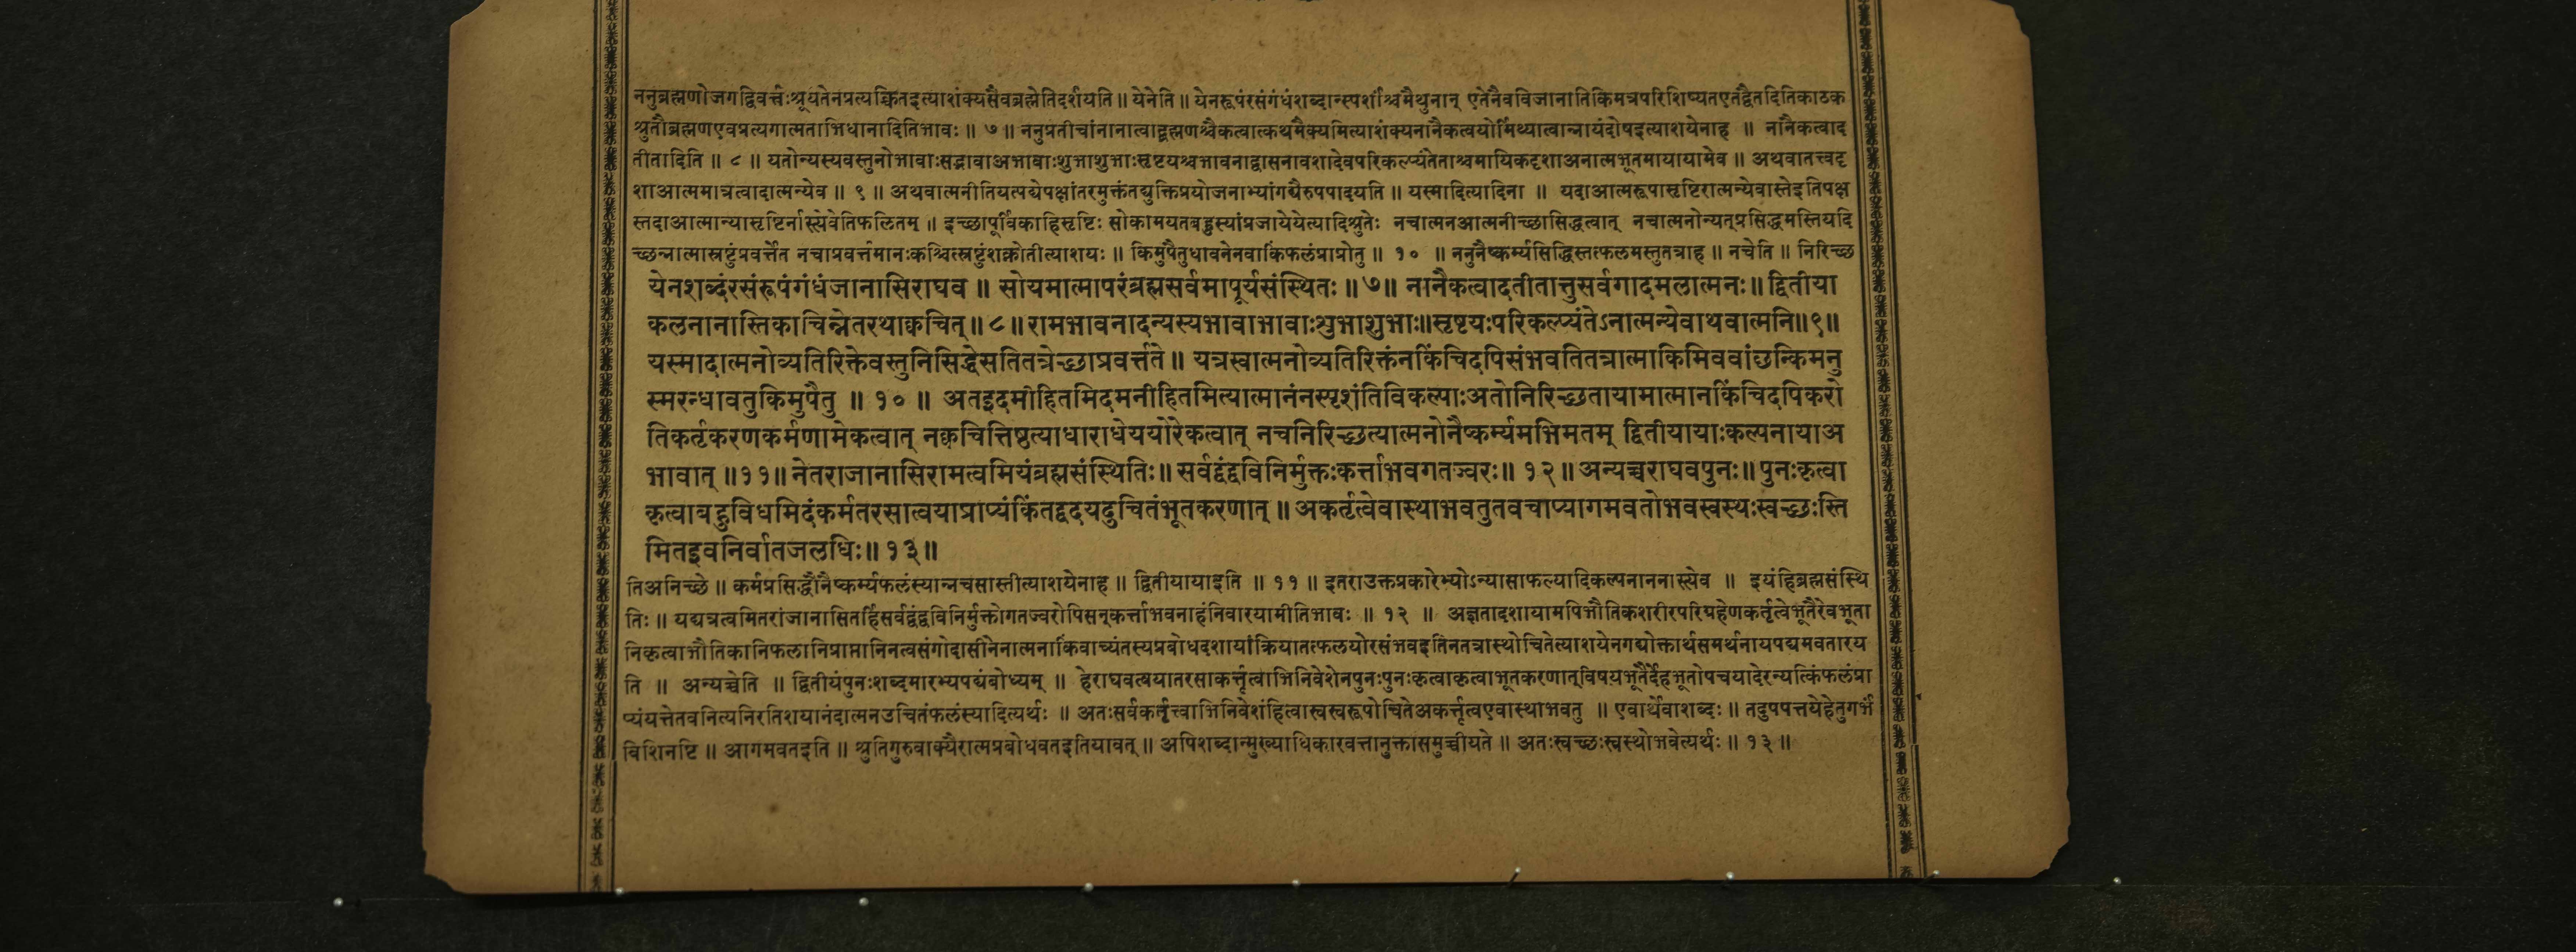 ननुब्रह्मणोजगद्विवर्त्तःश्रूयतेनप्रत्यक्चितइत्याशंक्यसैवब्रह्मेतिदर्शयति ॥ येनेति ॥ येनरूपंरसंगंधंशब्दान्स्पर्शांश्चमैथुनान् एतेनैवविजानातिकिमत्रपरिशिष्यतएतद्वैतदितिकाठक
श्रुतौब्रह्मणएवप्रत्यगात्मताभिधानादितिभावः ॥ ७ ॥ ननुप्रतीचांनानात्वाद्ब्रह्मणश्चैकत्वात्कथमैक्यमित्याशंक्यनानैकत्वयोर्मिथ्यात्वान्नायंदोषइत्याशयेनाह ॥ नानैकत्वाद
तीतादिति ॥ ८ ॥ यतोन्यस्यवस्तुनोभावाःसद्भावाअभावाःशुभाशुभाःसृष्टयश्चभावनाद्वासनावशादेवपरिकल्प्यंतेताश्चमायिकदृशाअनात्मभूतमायायामेव ॥ अथवातत्त्वदृ
शाआत्ममात्रत्वादात्मन्येव ॥ ९ ॥ अथवात्मनीतियत्पद्येपक्षांतरमुक्तंतद्युक्तिप्रयोजनाभ्यांगद्यैरुपपादयति ॥ यस्मादित्यादिना ॥ यदाआत्मरूपासृष्टिरात्मन्येवास्तेइतिपक्ष
स्तदाआत्मान्यासृष्टिर्नास्त्येवेतिफलितम् ॥ इच्छापूर्विकाहिसृष्टिः सोकामयतबहुस्यांप्रजायेयेत्यादिश्रुतेः नचात्मनआत्मनीच्छासिद्धत्वात् नचात्मनोन्यत्प्रसिद्धमस्तियदि
च्छन्नात्मास्रष्टुंप्रवर्त्तेत नचाप्रवर्त्तमानःकश्चित्स्रष्टुंशक्नोतीत्याशयः ॥ किमुपैतुधावनेनवाकिंफलंप्राप्नोतु ॥ १० ॥ ननुनैष्कर्म्यसिद्धिस्तत्फलमस्तुतत्राह ॥ नचेति ॥ निरिच्छ
येनशब्दंरसंरूपंगंधंजानासिराघव ॥ सोयमात्मापरंब्रह्मसर्वमापूर्यसंस्थितः ॥ ७ ॥ नानैकत्वादतीतात्तुसर्वगादमलात्मनः ॥ द्वितीया
कलनानास्तिकाचिन्नेतरथाक्वचित् ॥ ८ ॥ रामभावनादन्यस्यभावाभावाःशुभाशुभाः ॥ सृष्टयःपरिकल्प्यंतेऽनात्मन्येवाथवात्मनि ॥ ९ ॥
यस्मादात्मनोव्यतिरिक्तेवस्तुनिसिद्धेसतितत्रेच्छाप्रवर्त्तते ॥ यत्रस्वात्मनोव्यतिरिक्तंनकिंचिदपिसंभवतितत्रात्माकिमिववांछन्किमनु
स्मरन्धावतुकिमुपैतु ॥ १० ॥ अतइदमीहितमिदमनीहितमित्यात्मानंनस्पृशंतिविकल्पाःअतोनिरिच्छतायामात्मानकिंचिदपिकरो
तिकर्तृकरणकर्मणामेकत्वात् नक्वचित्तिष्ठत्याधाराधेययोरेकत्वात् नचनिरिच्छत्यात्मनोनैष्कर्म्यमभिमतम् द्वितीयायाःकल्पनायाअ
भावात् ॥ ११ ॥ नेतराजानासिरामत्वमियंब्रह्मसंस्थितिः ॥ सर्वद्वंद्वविनिर्मुक्तःकर्त्ताभवगतज्वरः ॥ १२ ॥ अन्यच्चराघवपुनः ॥ पुनःकृत्वा
कृत्वाबहुविधमिदंकर्मतरसात्वयाप्राप्यंकिंतद्वदयदुचितंभूतकरणात् ॥ अकर्तृत्वेवास्थाभवतुतवचाप्यागमवतोभवस्वस्थःस्वच्छःस्ति
मितइवनिर्वातजलधिः ॥ १३ ॥
तिअनिच्छे ॥ कर्मप्रसिद्धौनैष्कर्म्यफलंस्यान्नचसास्तीत्याशयेनाह ॥ द्वितीयायाइति ॥ ११ ॥ इतराउक्तप्रकारेभ्योऽन्यासाफल्यादिकल्पनाननास्त्येव ॥ इयंहिब्रह्मसंस्थि
तिः ॥ यद्यत्रत्वमितरांजानासितर्हिसर्वद्वंद्वविनिर्मुक्तोगतज्वरोपिसन्कर्त्ताभवनाहंनिवारयामीतिभावः ॥ १२ ॥ अज्ञतादशायामपिभौतिकशरीरपरिग्रहेणकर्तृत्वेभूतैरेवभूता
निकृत्वाभौतिकानिफलानिप्राप्तानिनत्वसंगोदासीनेनात्मनाकिंवाच्यंतस्यप्रबोधदशायांक्रियातत्फलयोरसंभवइतिनतत्रास्थोचितेत्याशयेनगद्योक्तार्थसमर्थनायपद्यमवतारय
ति ॥ अन्यच्चेति ॥ द्वितीयंपुनःशब्दमारभ्यपद्यंबोध्यम् ॥ हेराघवत्वयातरसाकर्त्तृत्वाभिनिवेशेनपुनःपुनःकृत्वाकृत्वाभूतकरणात्विषयभूतैर्देहभूतोपचयादेरन्यत्किंफलंप्रा
प्यंयत्तेतवनित्यनिरतिशयानंदात्मनउचितंफलंस्यादित्यर्थः ॥ अतःसर्वकर्तृत्वाभिनिवेशंहित्वास्वस्वरूपोचितेअकर्त्तृत्वएवास्थाभवतु ॥ एवार्थेवाशब्दः ॥ तदुपपत्तयेहेतुगर्भं
विशिनष्टि ॥ आगमवतइति ॥ श्रुतिगुरुवाक्यैरात्मप्रबोधवतइतियावत् ॥ अपिशब्दान्मुख्याधिकारवत्तानुक्तासमुच्चीयते ॥ अतःस्वच्छःस्वस्थोभवेत्यर्थः ॥ १३ ॥